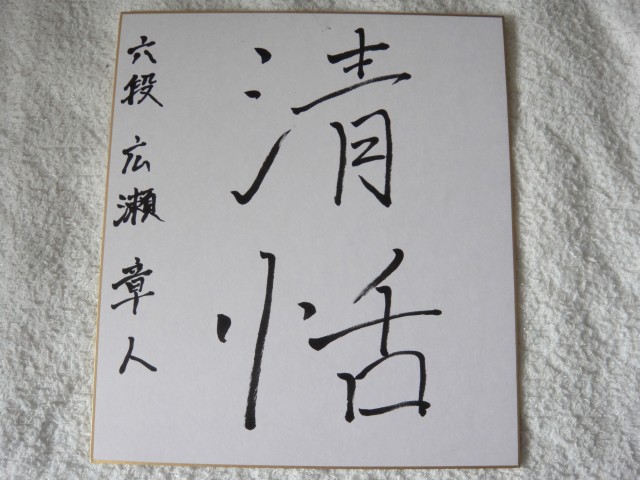 清恬
六段 広瀬 章人